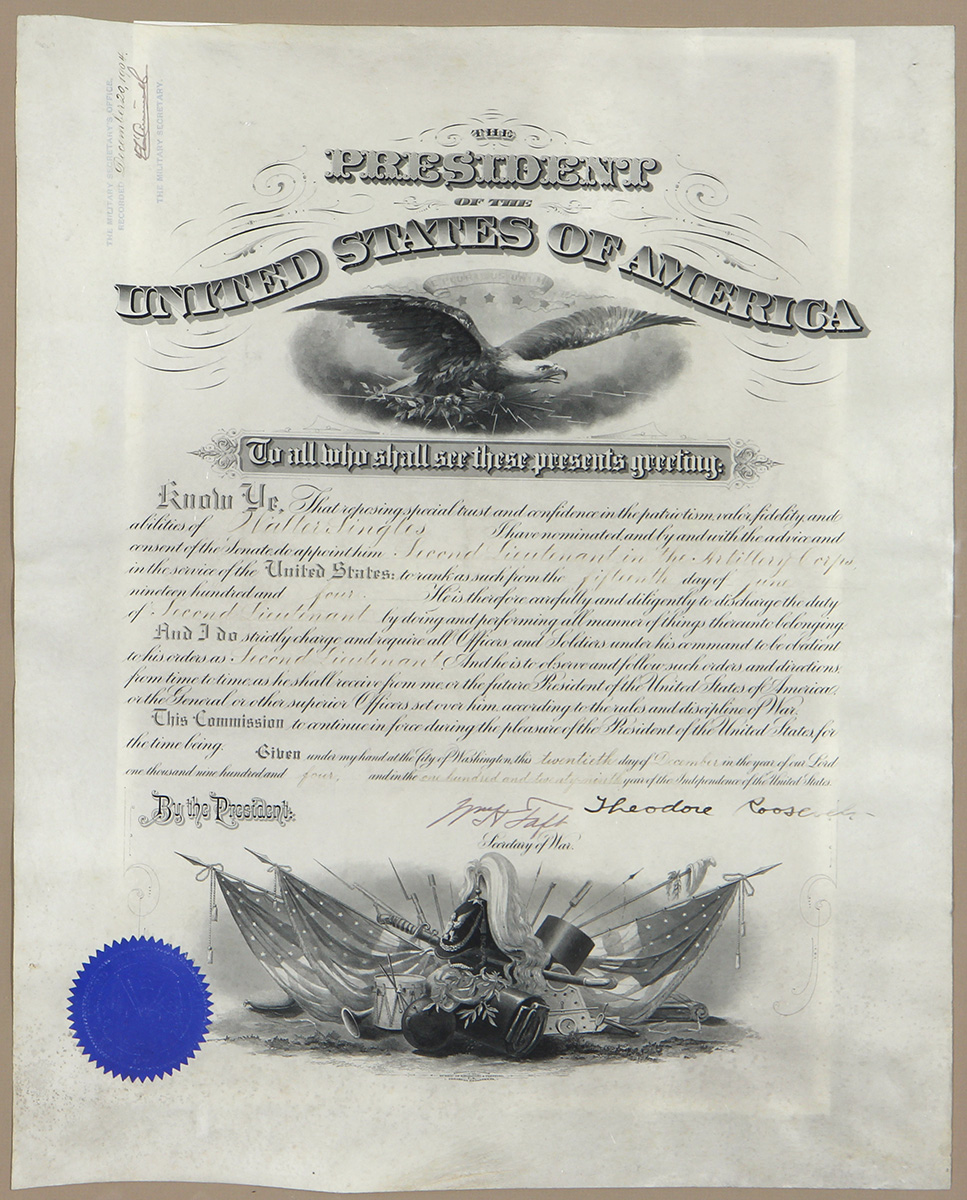 THE MILITARY SECRETARY'S OFFICE,
RECORDED December 20, 1904.
THE MILITARY SECRETARY.
THE
PRESIDENT
OF THE
UNITED STATES OF AMERICA
To all who shall see these presents greeting:
Know Ye, That reposing special trust and confidence in the patriotism, valor, fidelity, and
abilities of Singles I have nominated and by and with the advice and
consent of the Senate, do appoint him Second Lieutenant in the Artillery Corps
in the service of the United States: to rank as such from the fifteenth day of June
nineteen hundred and four. He is therefore carefully and diligently to discharge the duty
of Second Lieutenant by doing and performing all manner of things thereunto belonging.
And I do strictly charge and require all Officers and Soldiers under his command to be obedient
to his orders as Second Lieutenant And he is to observe and follow such orders and directions
from time to time, as he shall receive from me, or the future President of the United States of America,
or the General or other superior Officers set over him, according to the rules and discipline of War.
This Commission to continue in force during the pleasure of the President of the United States, for
the time being. Given under my hand at the City of Washington, this twentieth day of December in the year of our Lord
one thousand nine hundred and four, and in the one hundred and twenty-ninth year of the Independence of the United States.
By the President:
Theodore Roosevelt
Wm H Taft
Secretary of War.